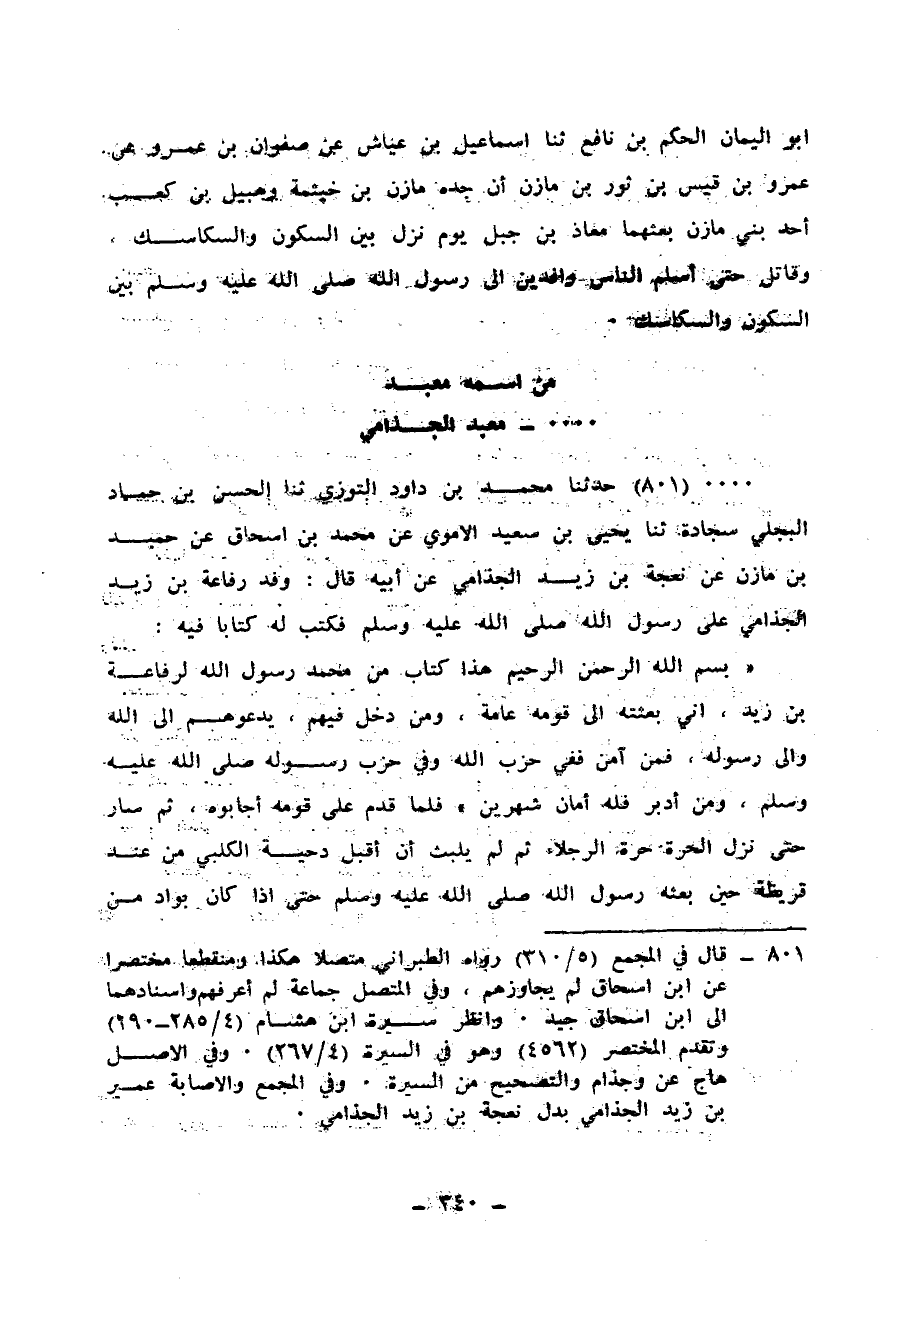 ابو اليمان الحكم بن نافع ثنا اسماعيل بن عياش عن صفوان بن عمرو عن
عمرو بن قيس بن ثور بن مازن أن جده مازن بن خيثمة وهبيل بن كعب
أحد بني مازن بعثهما معاذ بن جبل يوم نزل بين السكون والسكاسك ،
وقاتل حتى أسلم الناس وافدين الى رسول الله صلى الله عليه وسلم بين
السكون والسكاسك ٠
من اسمه معبد
٠٠٠٠ ــ معبد الجذامي
٠٠٠٠ (٨٠١) حدثنا محمد بن داود التوزي ثنا الحسن بن حماد
البجلي سجادة ثنا يحيى بن سعيد الاموي عن محمد بن اسحاق عن حميد
بن مازن عن نعجة بن زيد الجذامي عن أبيه قال : وفد رفاعة بن زيد
الجذامي على رسول الله صلى الله عليه وسلم فكتب له كتابا فيه :
« بسم الله الرحمن الرحيم هذا كتاب من محمد رسول الله لرفاعة
بن زيد ، اني بعثته الى قومه عامة ، ومن دخل فيهم ، يدعوهم الى الله
والى رسوله ، فمن آمن ففي حزب الله وفي حزب رسوله صلى الله عليه
وسلم ، ومن أدبر فله أمان شهرين » فلما قدم على قومه أجابوه ، ثم سار
حتى نزل الحرة حرة الرجلاء ثم لم يلبث أن أقبل دحية الكلبي من عند
قريظة حين بعثه رسول الله صلى الله عليه وسلم حتى اذا كان بواد من
٨٠١ ــ قال في المجمع (٣١٠/٥) رواه الطبراني متصلا هكذا ومنقطعا مختصرا
عن ابن اسحاق لم يجاوزهم ، وفي المتصل جماعة لم أعرفهم واسنادهما
الى ابن اسحاق جيد ٠ وانظر سيرة ابن هشام (٢٨٥/٤ــ٢٩٠)
وتقدم المختصر (٤٥٦٢) وهو في السيرة (٢٦٧/٤) ٠ وفي الاصل
هاج عن وجذام والتصحيح من السيرة ٠ وفي المجمع والاصابة عمير
بن زيد الجذامي بدل نعجة بن زيد الجذامي ٠
ــ ٣٤٠ ــ